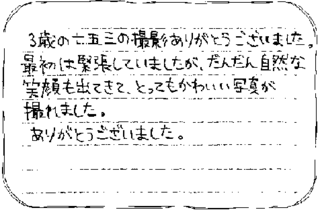 3歳の七五三の撮影ありがとうございました。
最初は緊張していましたが、だんだん自然な
笑顔も出てきて、とってもかわいい写真が
撮れました。
ありがとうございました。